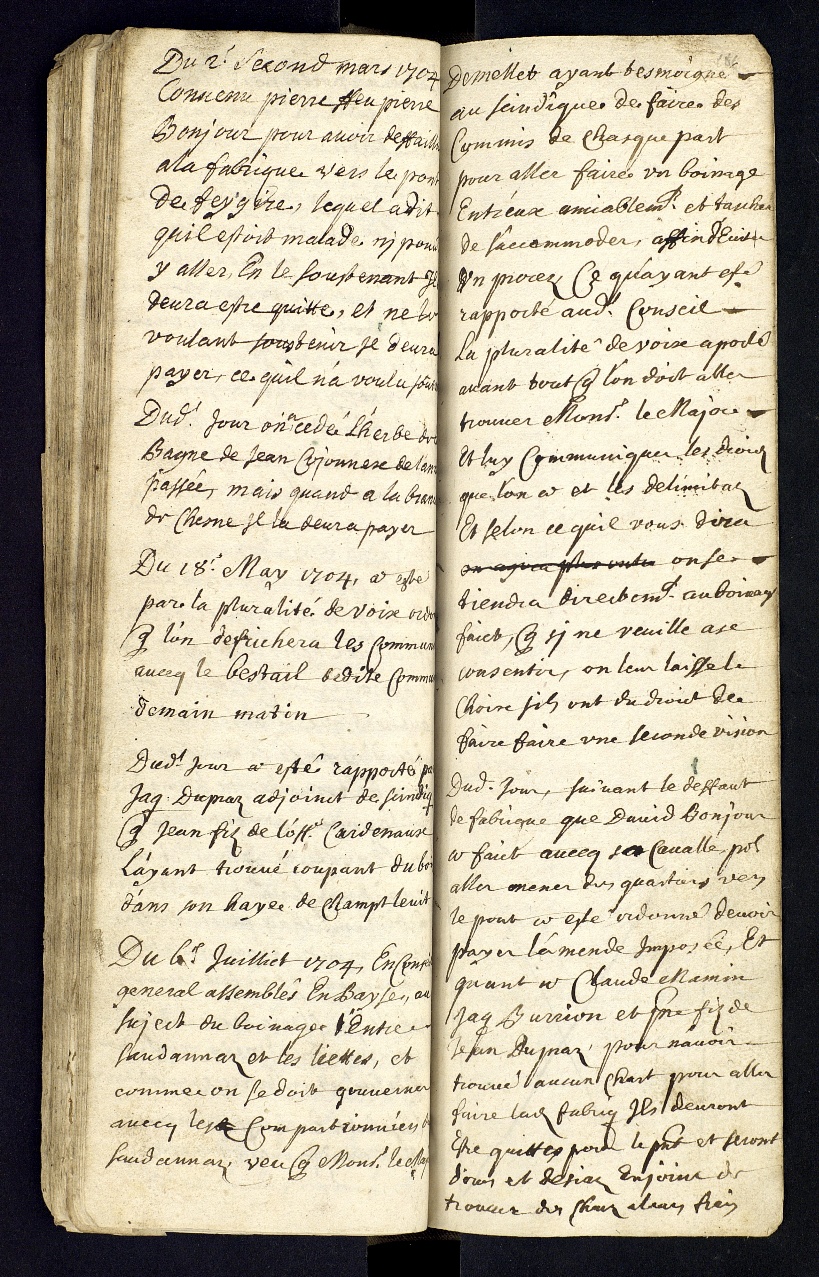 Du 2.^d Second mars 1704
Convenu pierre ffeu pierre
Bonjour pour avoir deffailli
a la fabrique vers le pont
de feygire, lequel a dit
quil estoit malade ny pouv
y aller, En le soustenant Jl
deura estre quitte, et ne le
voulant soustenir Jl deura
payer, ce quil n'a voulu
Dud.^t Jour on cedé L'herbe
Bagne de Jean de l'an
passée, mais quand a la
de Chesne Jl la deura payer
Du 18.^e May 1704, a esté
par la pluralité de voix
q̃ l'on defrichera les Commun
avecq le bestail dedite Commu
demain matin
Dud.^t Jour a esté rapporté pa
Jaq Dupraz adjoinct de
q̃ Jean filz de Cardenaux
L'ayant trouvé coupant du bo
dans son haye de Champt
Du 6.^e Juilliet 1704, En Conse
general assemblés En au
suject du boinage d'Entre
Saudannaz et les Liettes, et
comme on se doit gouverner
avecq les Compartionniers
Saudannaz, veu q̃ Mons.^r le Maj
Demellet ayant tesmoigné
au scindique de faire des
Commis de Chasque part
pour aller faire vn boinage
Entreux amiablem.^t et tascher
de s'accommoder, affin d'Eviter
vn procez, Ce qu'ayant esté
rapporté aud.^t Conseil
La pluralité de voix a
avant tout q̃ l'on doit aller
trouver Mons.^r le Major
Et luy Communiquer les droicz
que l'on a et les delimitaõ
Et selon ce quil vous dira
on se
tiendra directem.^t au boinage
faict, q̃ sj ne veuille a se
consentir, on leur laisse le
Choix silz ont du droict de
faire faire vne seconde vision
Dud. Jour, suivant le deffaut
de fabrique que David Bonjour
a faict avecq sa Cavalle, po^r
aller mener des quartiers vers
le pont a esté ordonné devoir
payer l'amende Imposée, Et
quant a Claude Mamin
Jaq Burrion et filz de
Jean Dupraz, pour n'avoir
trouvé aucun Chart pour aller
faire lad fabriq Jls deuront
Estre quittes po^r le pñt et seront
d'ores et desia Enjoint de
trouver des Charz a leurs frais